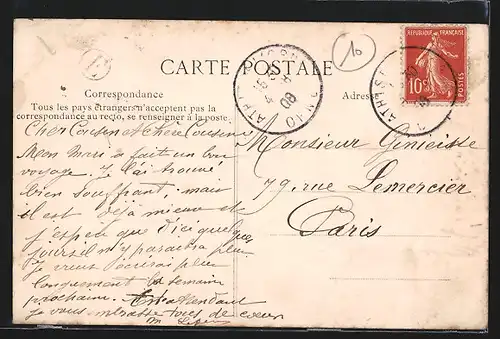 CARTE POSTALE
Correspondance
Tous les pays étrangers n'acceptent pas la
correspondance au recto, se renseigner à la poste.
Adres
10
REPUBLIQUE FRANÇAISE
10c
POSTES
Cher Cousin et Chère Cousine
Mon Mari a fait un bon
voyage. Je l'ai trouvé
bien souffrant, mais
il est déjà mieux et
j'espère que d'ici quelques
jours il n'y paraîtra plus.
Je vous écrirai plus
longuement la semaine
prochaine. En attendant
je vous embrasse tous de coeur
Monsieur
79, rue Lemercier
Paris